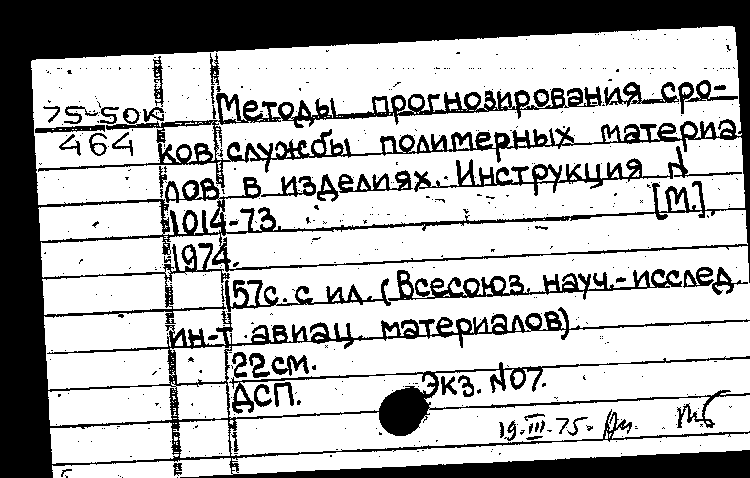 75-50к Методы прогнозирования сро-
464 ков службы полимерных материа
лов в изделиях. Инструкция N
1014-73. [М.],
1974.
57с. с ил. (Всесоюз. науч.-исслед.
ин-т авиац. материалов).
22см.
ДСП. Экз. N07.
19.III.75.